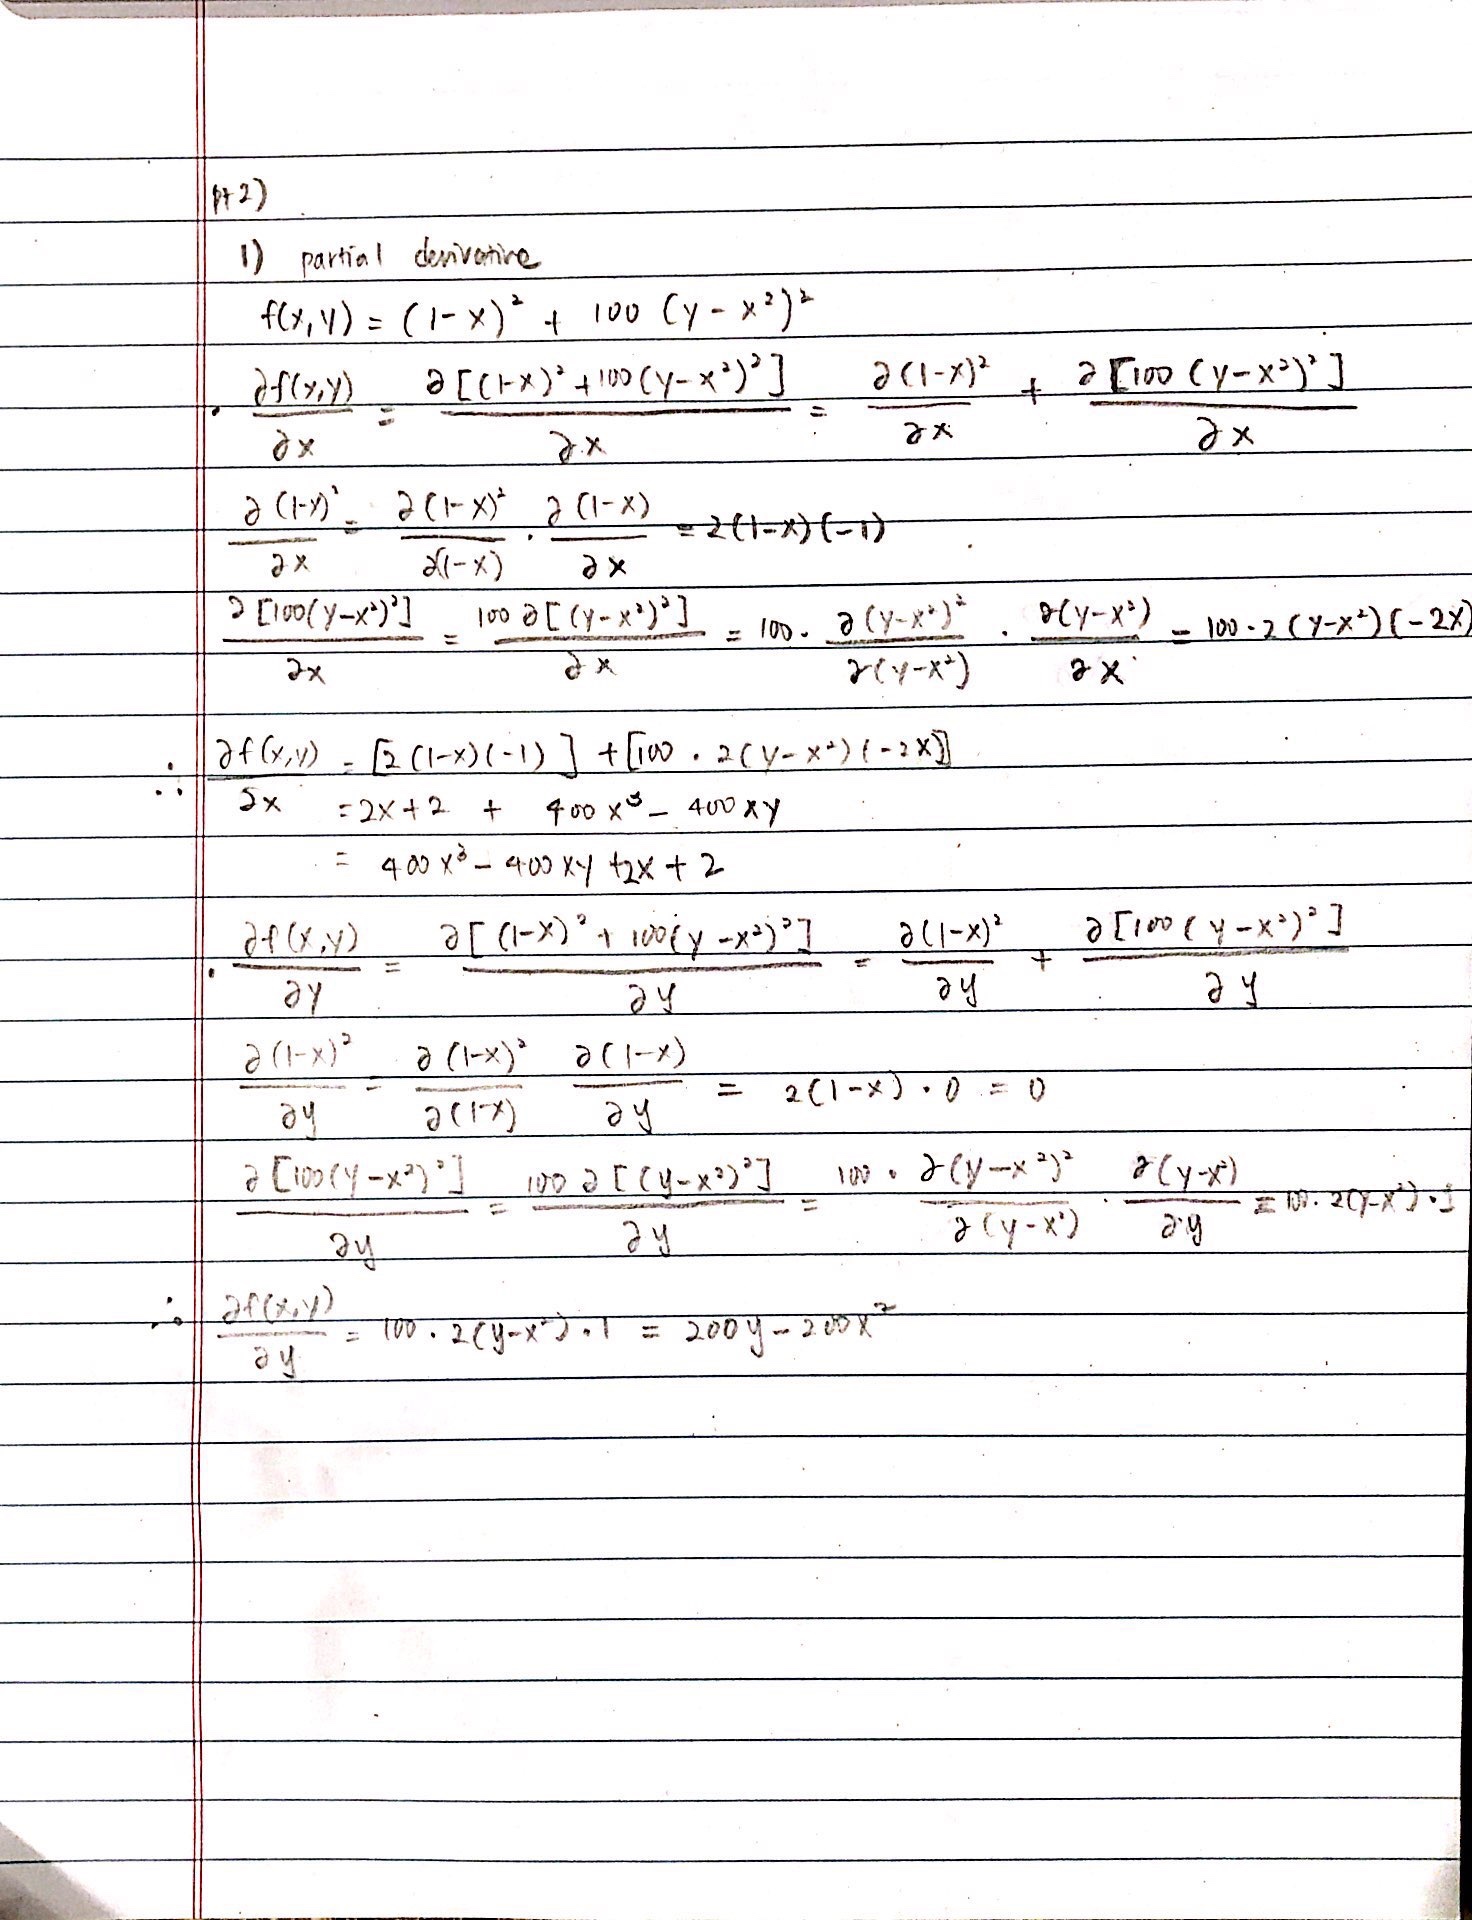 pt 2)
1) partial derivative
f(x,y) = (1-x)² + 100 (y-x²)²
· ∂f(x,y)/∂x = ∂[(1-x)²+100(y-x²)²]/∂x = ∂(1-x)²/∂x + ∂[100(y-x²)²]/∂x
∂(1-x)²/∂x = ∂(1-x)²/∂(1-x) · ∂(1-x)/∂x = 2(1-x)(-1)
∂[100(y-x²)²]/∂x = 100∂[(y-x²)²]/∂x = 100· ∂(y-x²)²/∂(y-x²) · ∂(y-x²)/∂x = 100·2(y-x²)(-2x)
∴ ∂f(x,y)/∂x = [2(1-x)(-1)] + [100·2(y-x²)(-2x)]
= 2x+2 + 400x³ - 400xy
= 400x³ - 400xy +2x + 2
· ∂f(x,y)/∂y = ∂[(1-x)² + 100(y-x²)²]/∂y = ∂(1-x)²/∂y + ∂[100(y-x²)²]/∂y
∂(1-x)²/∂y = ∂(1-x)²/∂(1-x) ∂(1-x)/∂y = 2(1-x)·0 = 0
∂[100(y-x²)²]/∂y = 100∂[(y-x²)²]/∂y = 100· ∂(y-x²)²/∂(y-x²) · ∂(y-x²)/∂y = 100·2(y-x²)·1
∴ ∂f(x,y)/∂y = 100·2(y-x²)·1 = 200y - 200x²